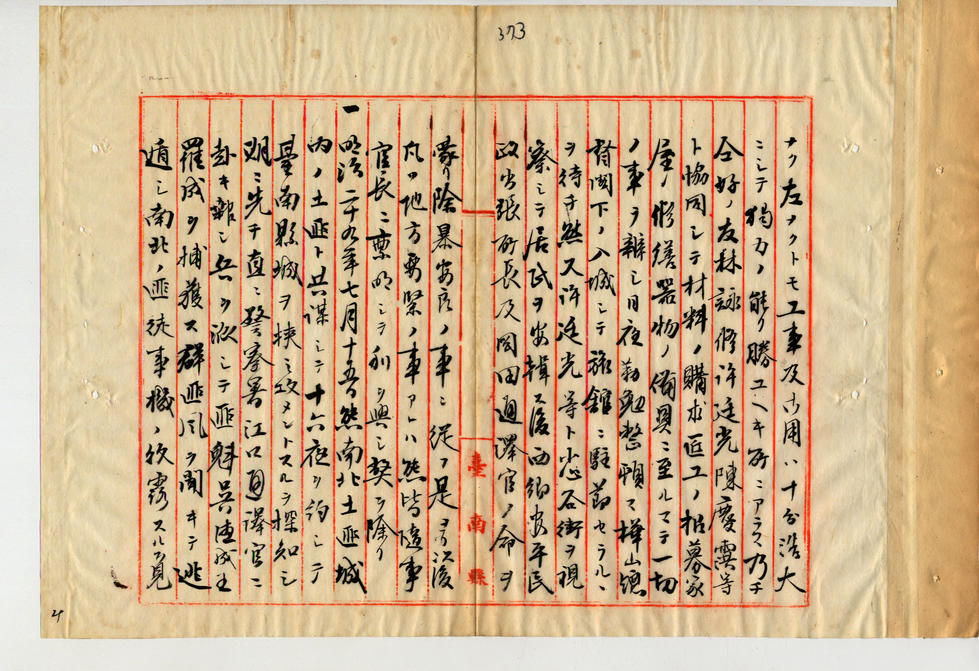 373
ナク左ナクトモ工事及古用ハ十分浩大
ニシテ獨力ノ能ク勝ユヘキ所ニアラス乃チ
仝好ノ友林詠修許廷光陳慶雲等
ト協同シテ材料ノ購求匠工ノ招募家
屋ノ修繕器物ノ備具ニ至ルマテ一切
ノ事ヲ辨シ日夜勤勉整頓シ樺山總
督閣下ノ入城シテ旅館ニ駐節セラルヽ
ヲ待チ然又許廷光等ト小心各街ヲ視
察シテ居民ヲ安輯ス後西鄉安平民
政出張所長及岡田通譯官ノ命ヲ
蒙リ除暴安良ノ事ニ從フ是ヨリ後
凡ソ地方要緊ノ事アレハ然皆隨事
官長ニ稟明シテ利ヲ興シ弊ヲ除ク
一明治二十九年七月十五日然南北土匪城
内ノ土匪ト共謀シテ十六夜ヲ約シテ
臺南縣城ヲ挾ミ攻メントスルヲ探知シ
則ニ先チ直ニ警察署江口通譯官ニ
赴キ報シ兵ヲ派シテ匪魁吳連成王
羅成ヲ捕獲ス群匪風ヲ聞キテ逃
遁シ南北ノ匪徒事機ノ敗露スルヲ見
臺南縣